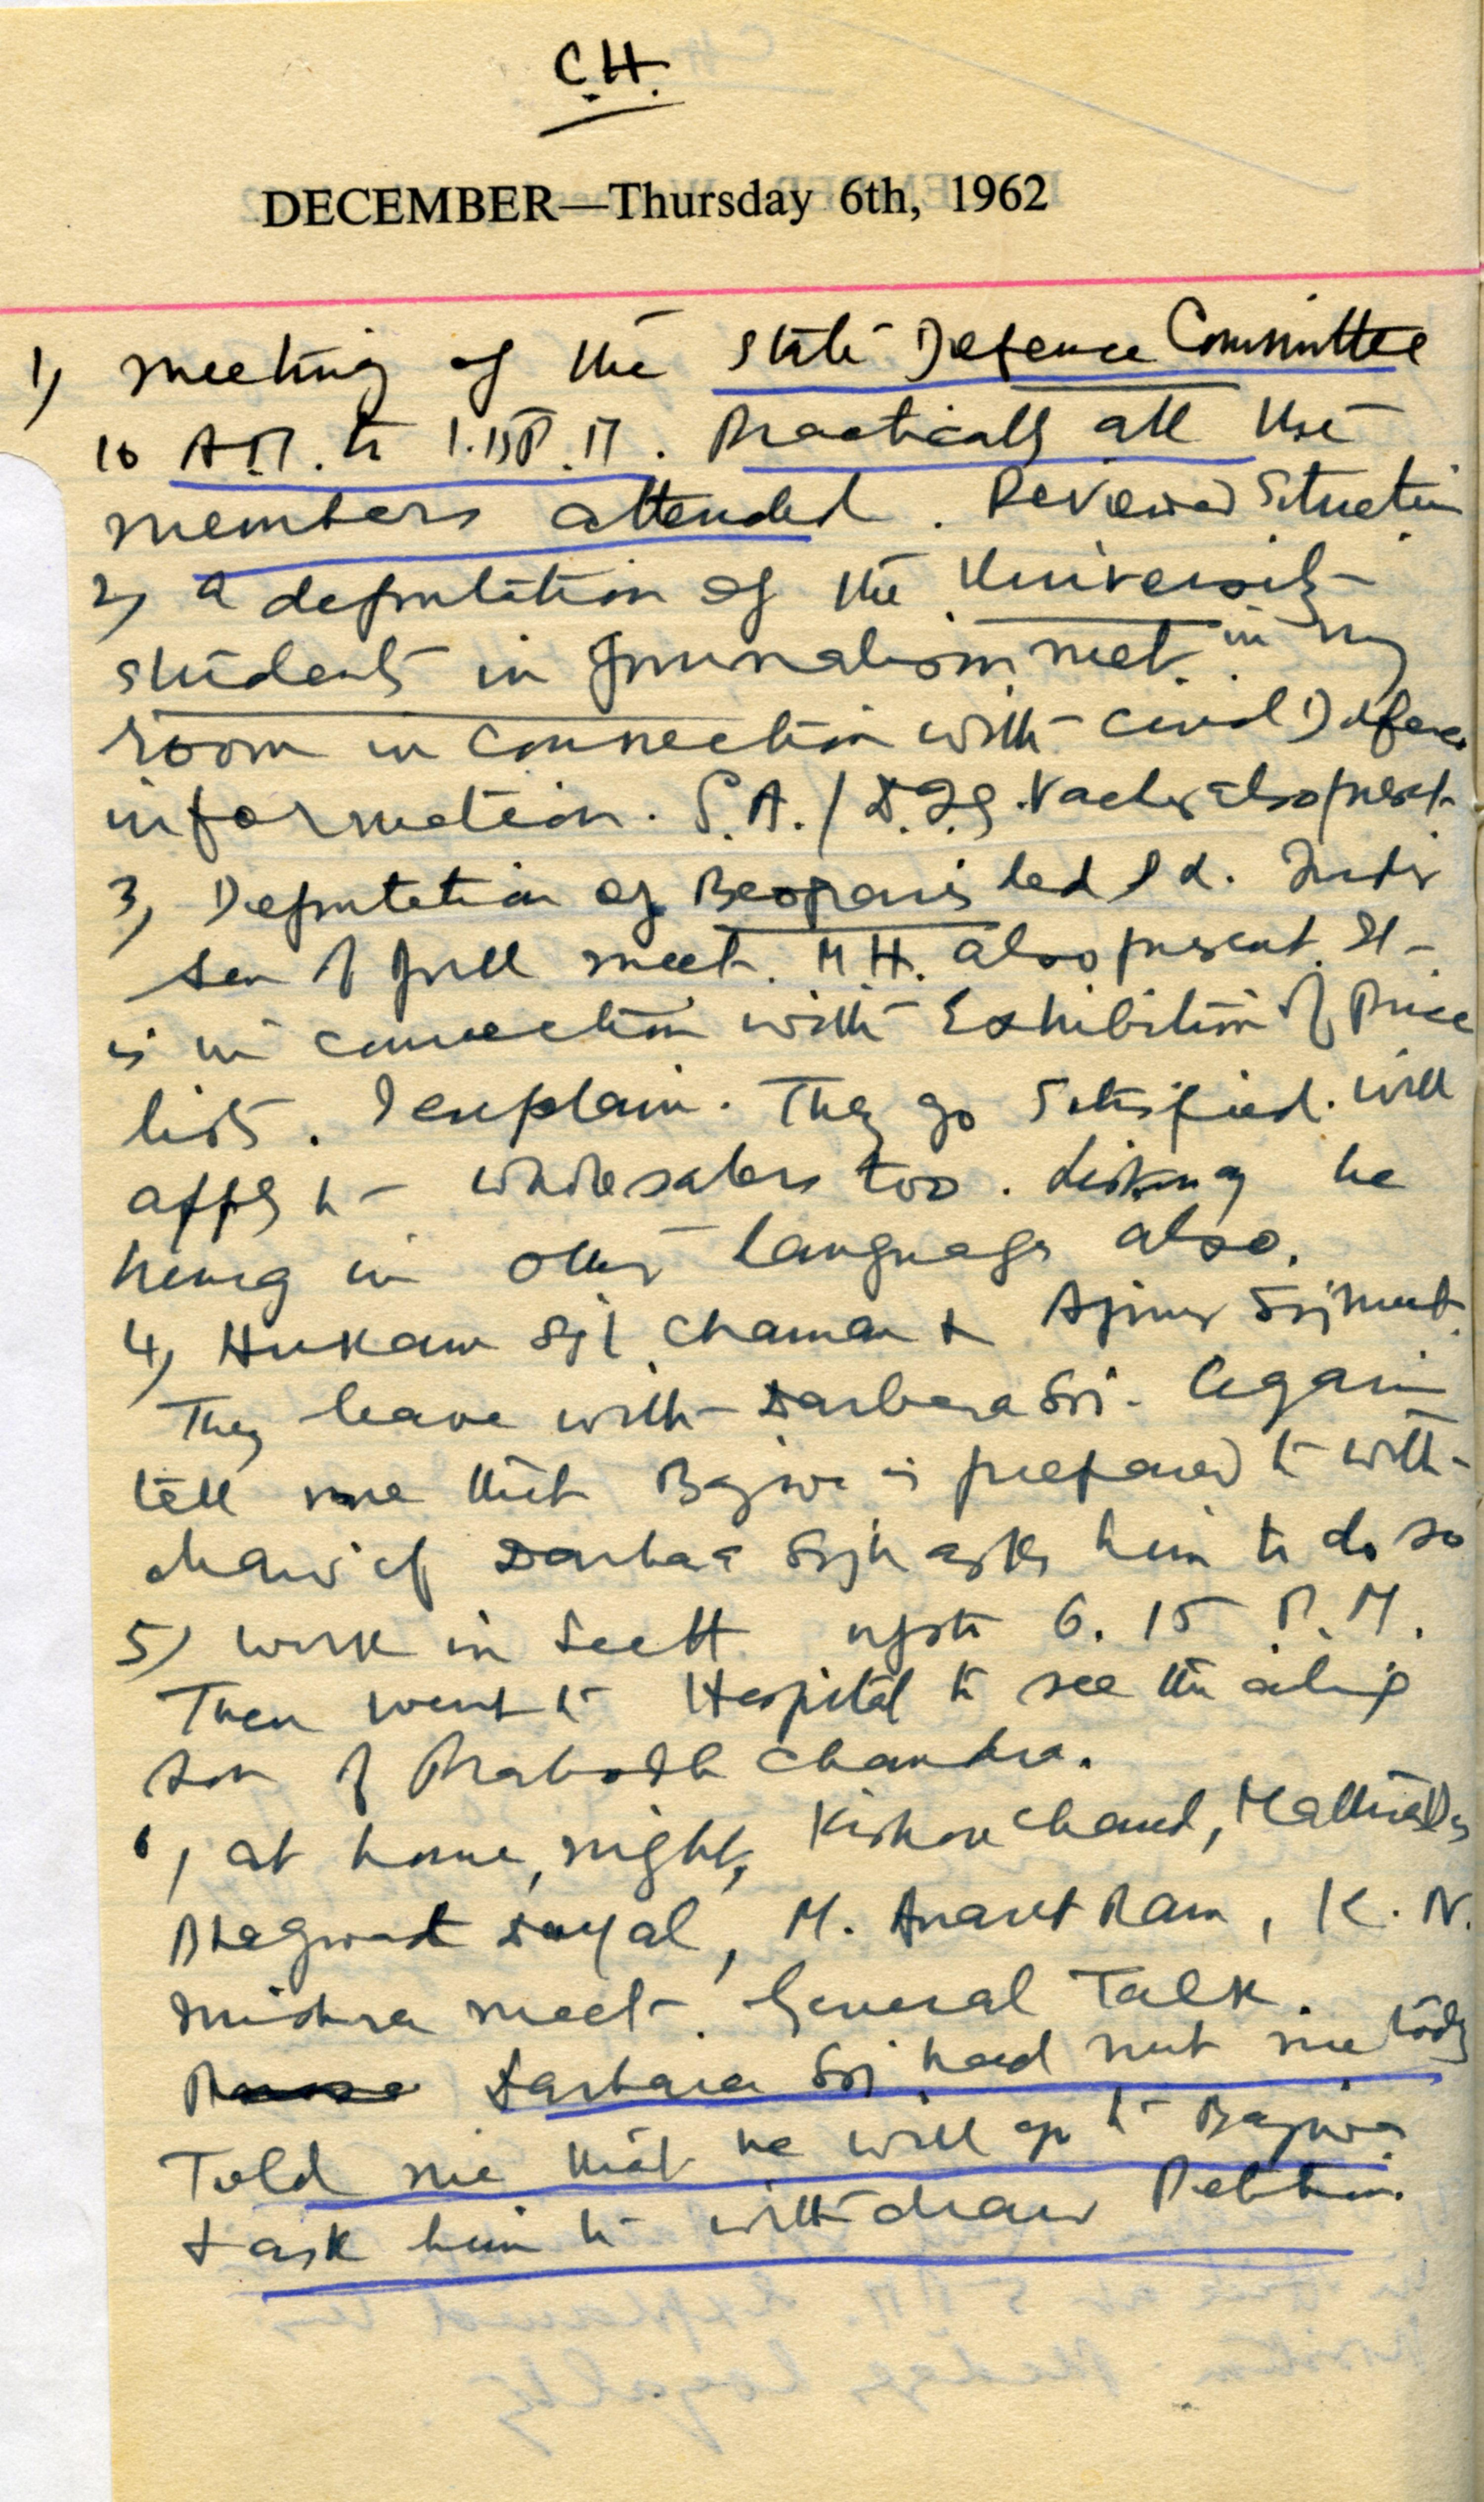 C.H.
DECEMBER—Thursday 6th, 1962
1) meeting of the State Defence Committee
10 A.M. to 1.15 P.M. Practically all the
members attended. Reviewed Situation
2) A deputation of the University
students in Journalism meet in my
room in connection with Civil Defence
information. S.A./ also present
3) Deputation of Beoparis led
Sen of meet. M.H. also present. It
is in connection with Exhibition of Price
lists. I explain. They go satisfied. will
apply to wholesalers too. he
in other language also.
4) Hukam Sgh Chaman & Ajmer Sgh meet.
They leave with Darbara Sgh. Again
tell me that Bajwa is prepared to with-
draw if Darbara Sgh asks him to do so
5) work in Sectt upto 6.15 P.M.
Then went to Hospital to see the ailing
son of Prabodh Chandra.
6) at home, night, Kishore Chand,
Bhagwat Dayal, M. Anant Ram, K. N.
Mishra meet. General Talk.
Darbara Sgh had met me today
Told me that he will go to Bajwa
& ask him to withdraw Petition.